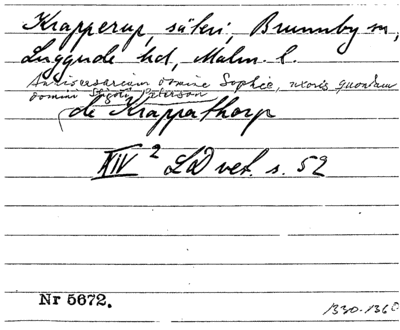 Krapperup, säteri, Brunnby sn,
Luggude hd, Malm. l.
Anniversarium domine Sophie, uxoris quondam
domini Stigoti Peterson
de Krappathorp
XIV 2 LD vet. s. 52
Nr 5672.
1330-1360